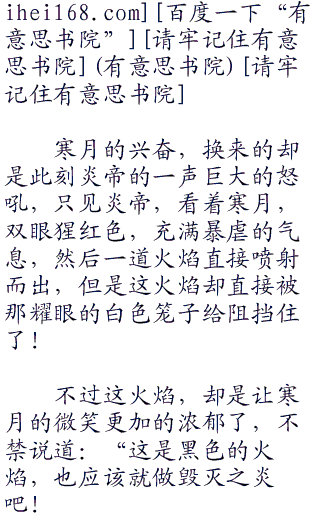 ihei168.com][百度一下“有
意思书院”][请牢记住有意
思书院](有意思书院)[请牢
记住有意思书院]
寒月的兴奋，换来的却
是此刻炎帝的一声巨大的怒
吼，只见炎帝，看着寒月，
双眼猩红色，充满暴虐的气
息，然后一道火焰直接喷射
而出，但是这火焰却直接被
那耀眼的白色笼子给阻挡住
了！
不过这火焰，却是让寒
月的微笑更加的浓郁了，不
禁说道：“这是黑色的火
焰，也应该就做毁灭之炎
吧！